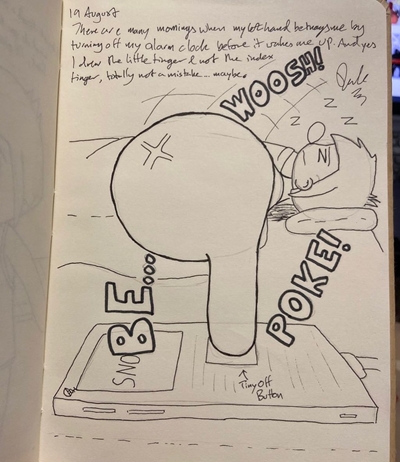 19 August
There are many mornings when my left hand betrays me by
turning off my alarm clock before it wakes me up. And yes
I drew the little finger & not the index
finger, totally not a mistake... maybe.
WOOSH!
Z
Z
Z
Z
N
BE...
POKE!
SNO
Tiny Off
Button